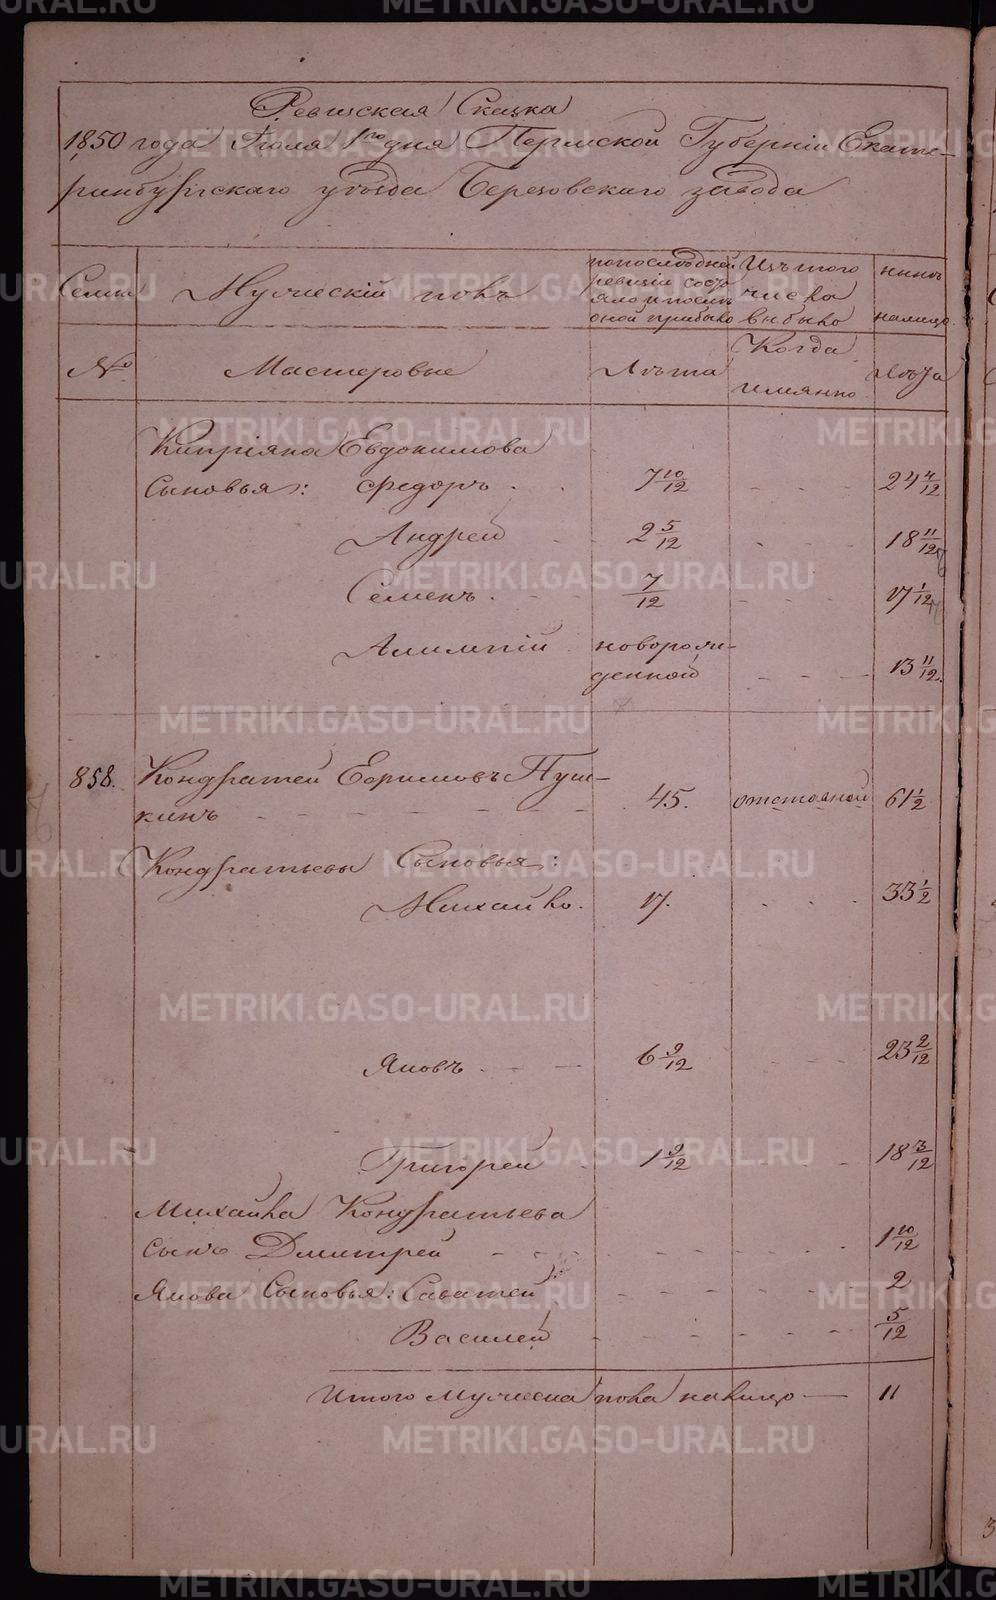 Ревижская Сказка
1850 года Июля 1го дня Пермской Губерніи Екате-
ринбургскаго уѣзда Березовскаго завода
Семьи
Мужескій полъ
по последней
ревизіи состо
яло и после
оной прибыло
Изъ того
числа
выбыло
нынѣ
налицо.
№
Мастеровые
Лѣта
Когда
имянно
Лѣта
Кипріяна Евдокимова
Сыновья: Федоръ 7 10/12 24 4/12
Андрей 2 5/12 18 11/12
Семенъ 7/12 17 1/12
Алимпій новорож-
денной 13 11/12
858. Кондратей Ефимовъ Пуш-
кинъ 45. отставной 61 1/2
Кондратьевы Сыновья:
Михайло. 17. 33 1/2
Яковъ 6 9/12 23 2/12
Григорей 1 9/12 18 3/12
Михайла Кондратьева
сынъ Дмитрей 1 10/12
Якова Сыновья: Саватей 2
Василей 5/12
Итого мужеска пола налицо — 11
METRIKI.GASO-URAL.RU